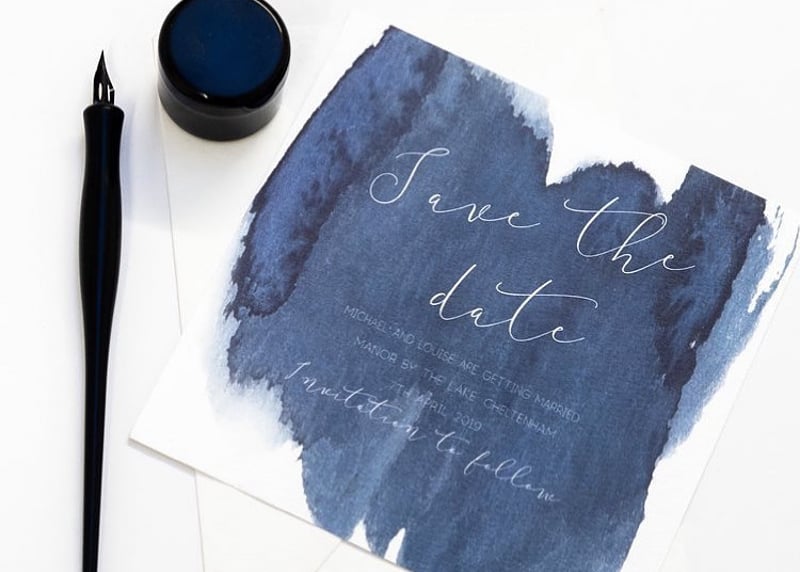 Save the
date
MICHAEL AND LOUISE ARE GETTING MARRIED
MANOR BY THE LAKE, CHELTENHAM
7TH APRIL 2019
Invitation to follow